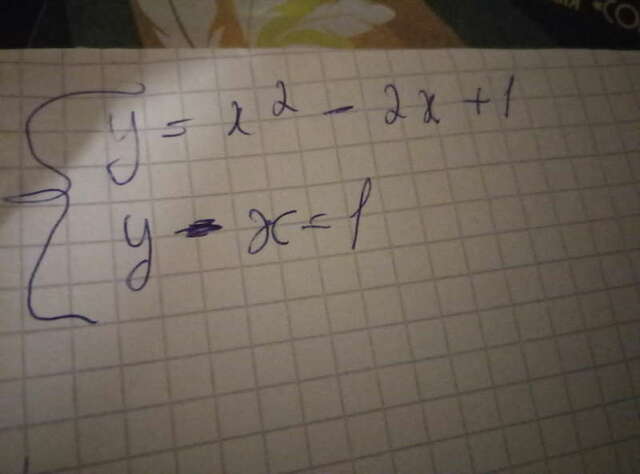 y = x² - 2x + 1
y - x = 1